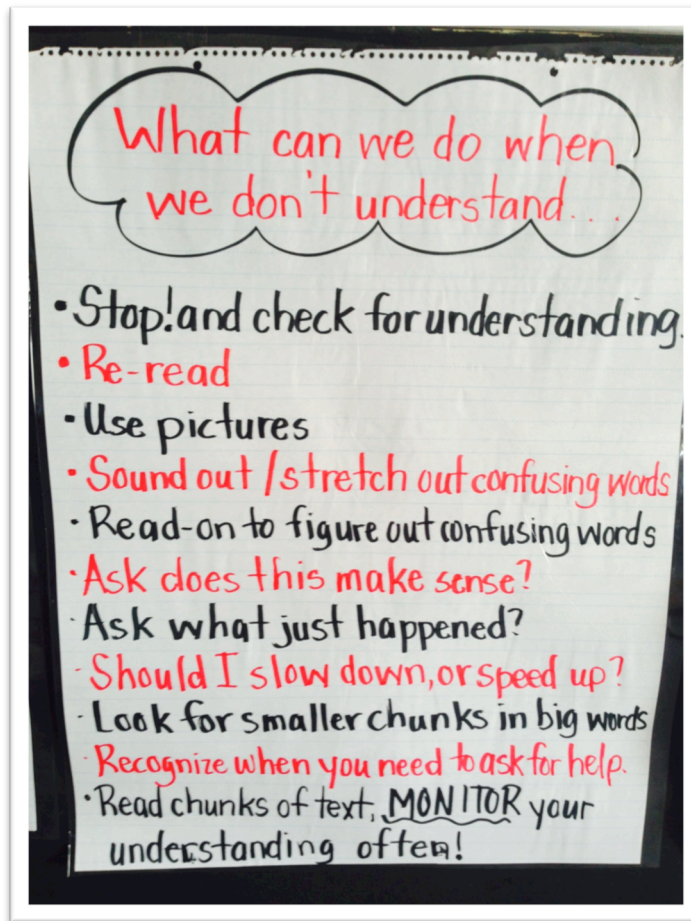 What can we do when
we don't understand...
• Stop! and check for understanding.
• Re-read
• Use pictures
• Sound out / stretch out confusing words
• Read-on to figure out confusing words
• Ask does this make sense?
• Ask what just happened?
• Should I slow down, or speed up?
• Look for smaller chunks in big words
• Recognize when you need to ask for help.
• Read chunks of text, MONITOR your
understanding often!